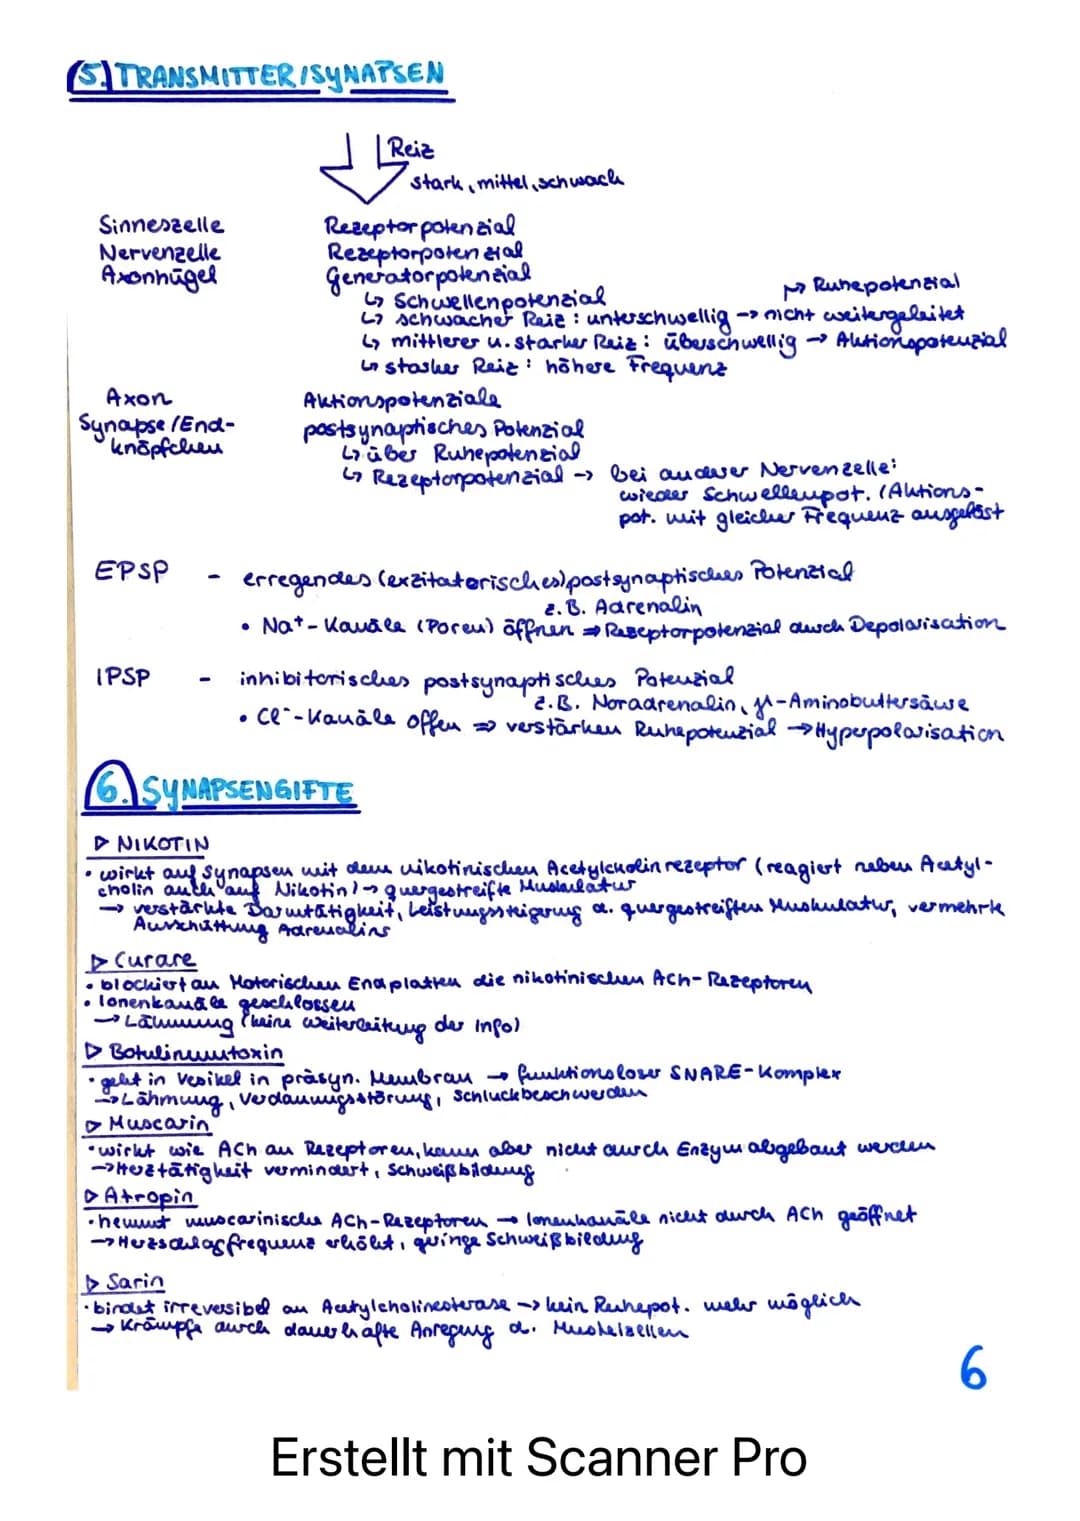 5. TRANSMITTER/SYNAPSEN
Reiz
stark, mittel, schwach
Sinneszelle Rezeptorpotenzial
Nervenzelle Rezeptorpotenzial
Axonhügel Generatorpotenzial
↳ Schwellenpotenzial ↦ Ruhepotenzial
↳ schwacher Reiz: unterschwellig → nicht weitergeleitet
↳ mittlerer u. starker Reiz: überschwellig → Aktionspotenzial
↳ starker Reiz: höhere Frequenz
Axon Aktionspotenziale
Synapse/End- postsynaptisches Potenzial
knöpfchen ↳ über Ruhepotenzial
↳ Rezeptorpotenzial → bei anderer Nervenzelle:
wieder Schwellenpot. (Aktions-
pot. mit gleicher Frequenz ausgelöst
EPSP - erregendes (exzitatorisches) postsynaptisches Potenzial
z.B. Adrenalin
• Na⁺-Kanäle (Poren) öffnen ⇒ Rezeptorpotenzial durch Depolarisation
IPSP - inhibitorisches postsynaptisches Potenzial
z.B. Noradrenalin, -Aminobuttersäure
• Cl⁻-Kanäle offen ⇒ verstärken Ruhepotenzial → Hyperpolarisation
6. SYNAPSENGIFTE
▷ NIKOTIN
• wirkt auf Synapsen mit dem nikotinischen Acetylcholinrezeptor (reagiert neben Acetyl-
cholin auch auf Nikotin) → quergestreifte Muskulatur
→ verstärkte Darmtätigkeit, Leistungssteigerung d. quergestreiften Muskulatur, vermehrte
Ausschüttung Adrenalins
▷ Curare
• blockiert an Motorischen Endplatten die nikotinischen ACh-Rezeptoren
• Ionenkanäle geschlossen
→ Lähmung (keine Weiterleitung der Info)
▷ Botulinumtoxin
• geht in Vesikel in präsyn. Membran → funktionsloser SNARE-Komplex
→ Lähmung, Verdauungsstörung, Schluckbeschwerden
▷ Muscarin
• wirkt wie ACh an Rezeptoren, kann aber nicht durch Enzym abgebaut werden
→ Herztätigkeit vermindert, Schweißbildung
▷ Atropin
• hemmt muscarinische ACh-Rezeptoren → Ionenkanäle nicht durch ACh geöffnet
→ Herzschlagfrequenz erhöht, geringe Schweißbildung
▷ Sarin
• bindet irreversibel an Acetylcholinesterase → kein Ruhepot. mehr möglich
→ Krämpfe durch dauerhafte Anregung d. Muskelzellen
6
Erstellt mit Scanner Pro